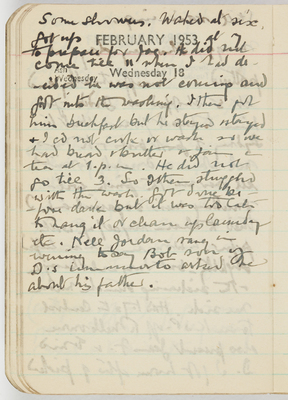 Some showers. Waked at six,
got up
FEBRUARY 1953 at 7
to prepare for Jag. He did not
come till 11 when I had de-
Ash Wednesday
Wednesday 18
cided he was not coming and
got into the washing. I then got
him breakfast but he stayed & stayed
& I cd not cook or wash so we
had bread & butter & jam &
tea at 1 p.m. He did not
go till 3. So I then struggled
with the wash. Got done by
four clock but it was too late
to hang it or clean up laundry
etc. Nell Jordan rang in
evening to say Bob
D's
about his father.